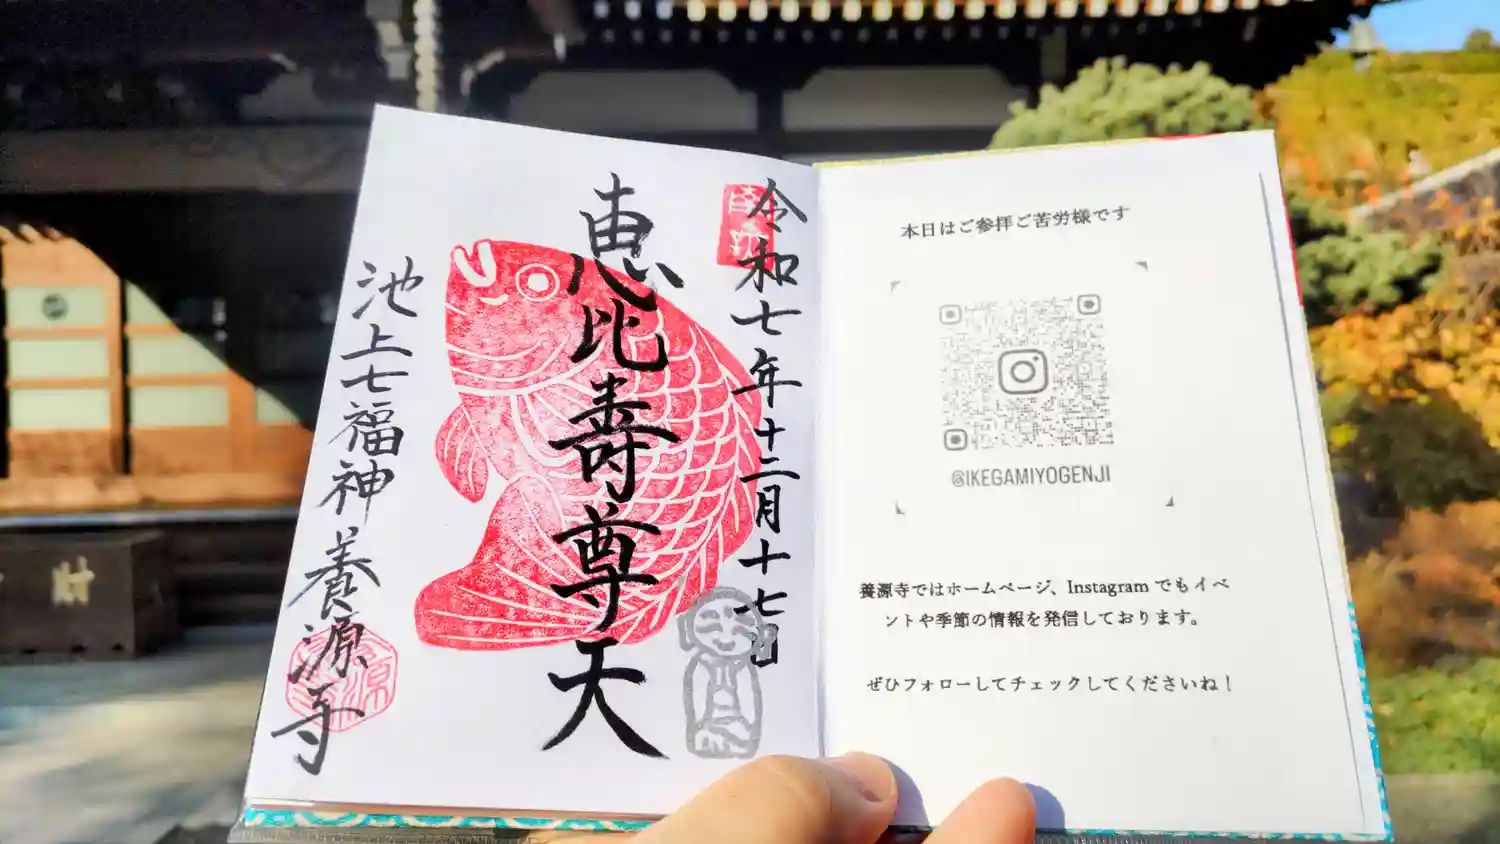 令和七年十二月十七日
恵比寿尊天
池上七福神
養源寺
本日はご参拝ご苦労様です
@IKEGAMIYOGENJI
養源寺ではホームページ、Instagram でもイベ
ントや季節の情報を発信しております。
ぜひフォローしてチェックしてくださいね！
財